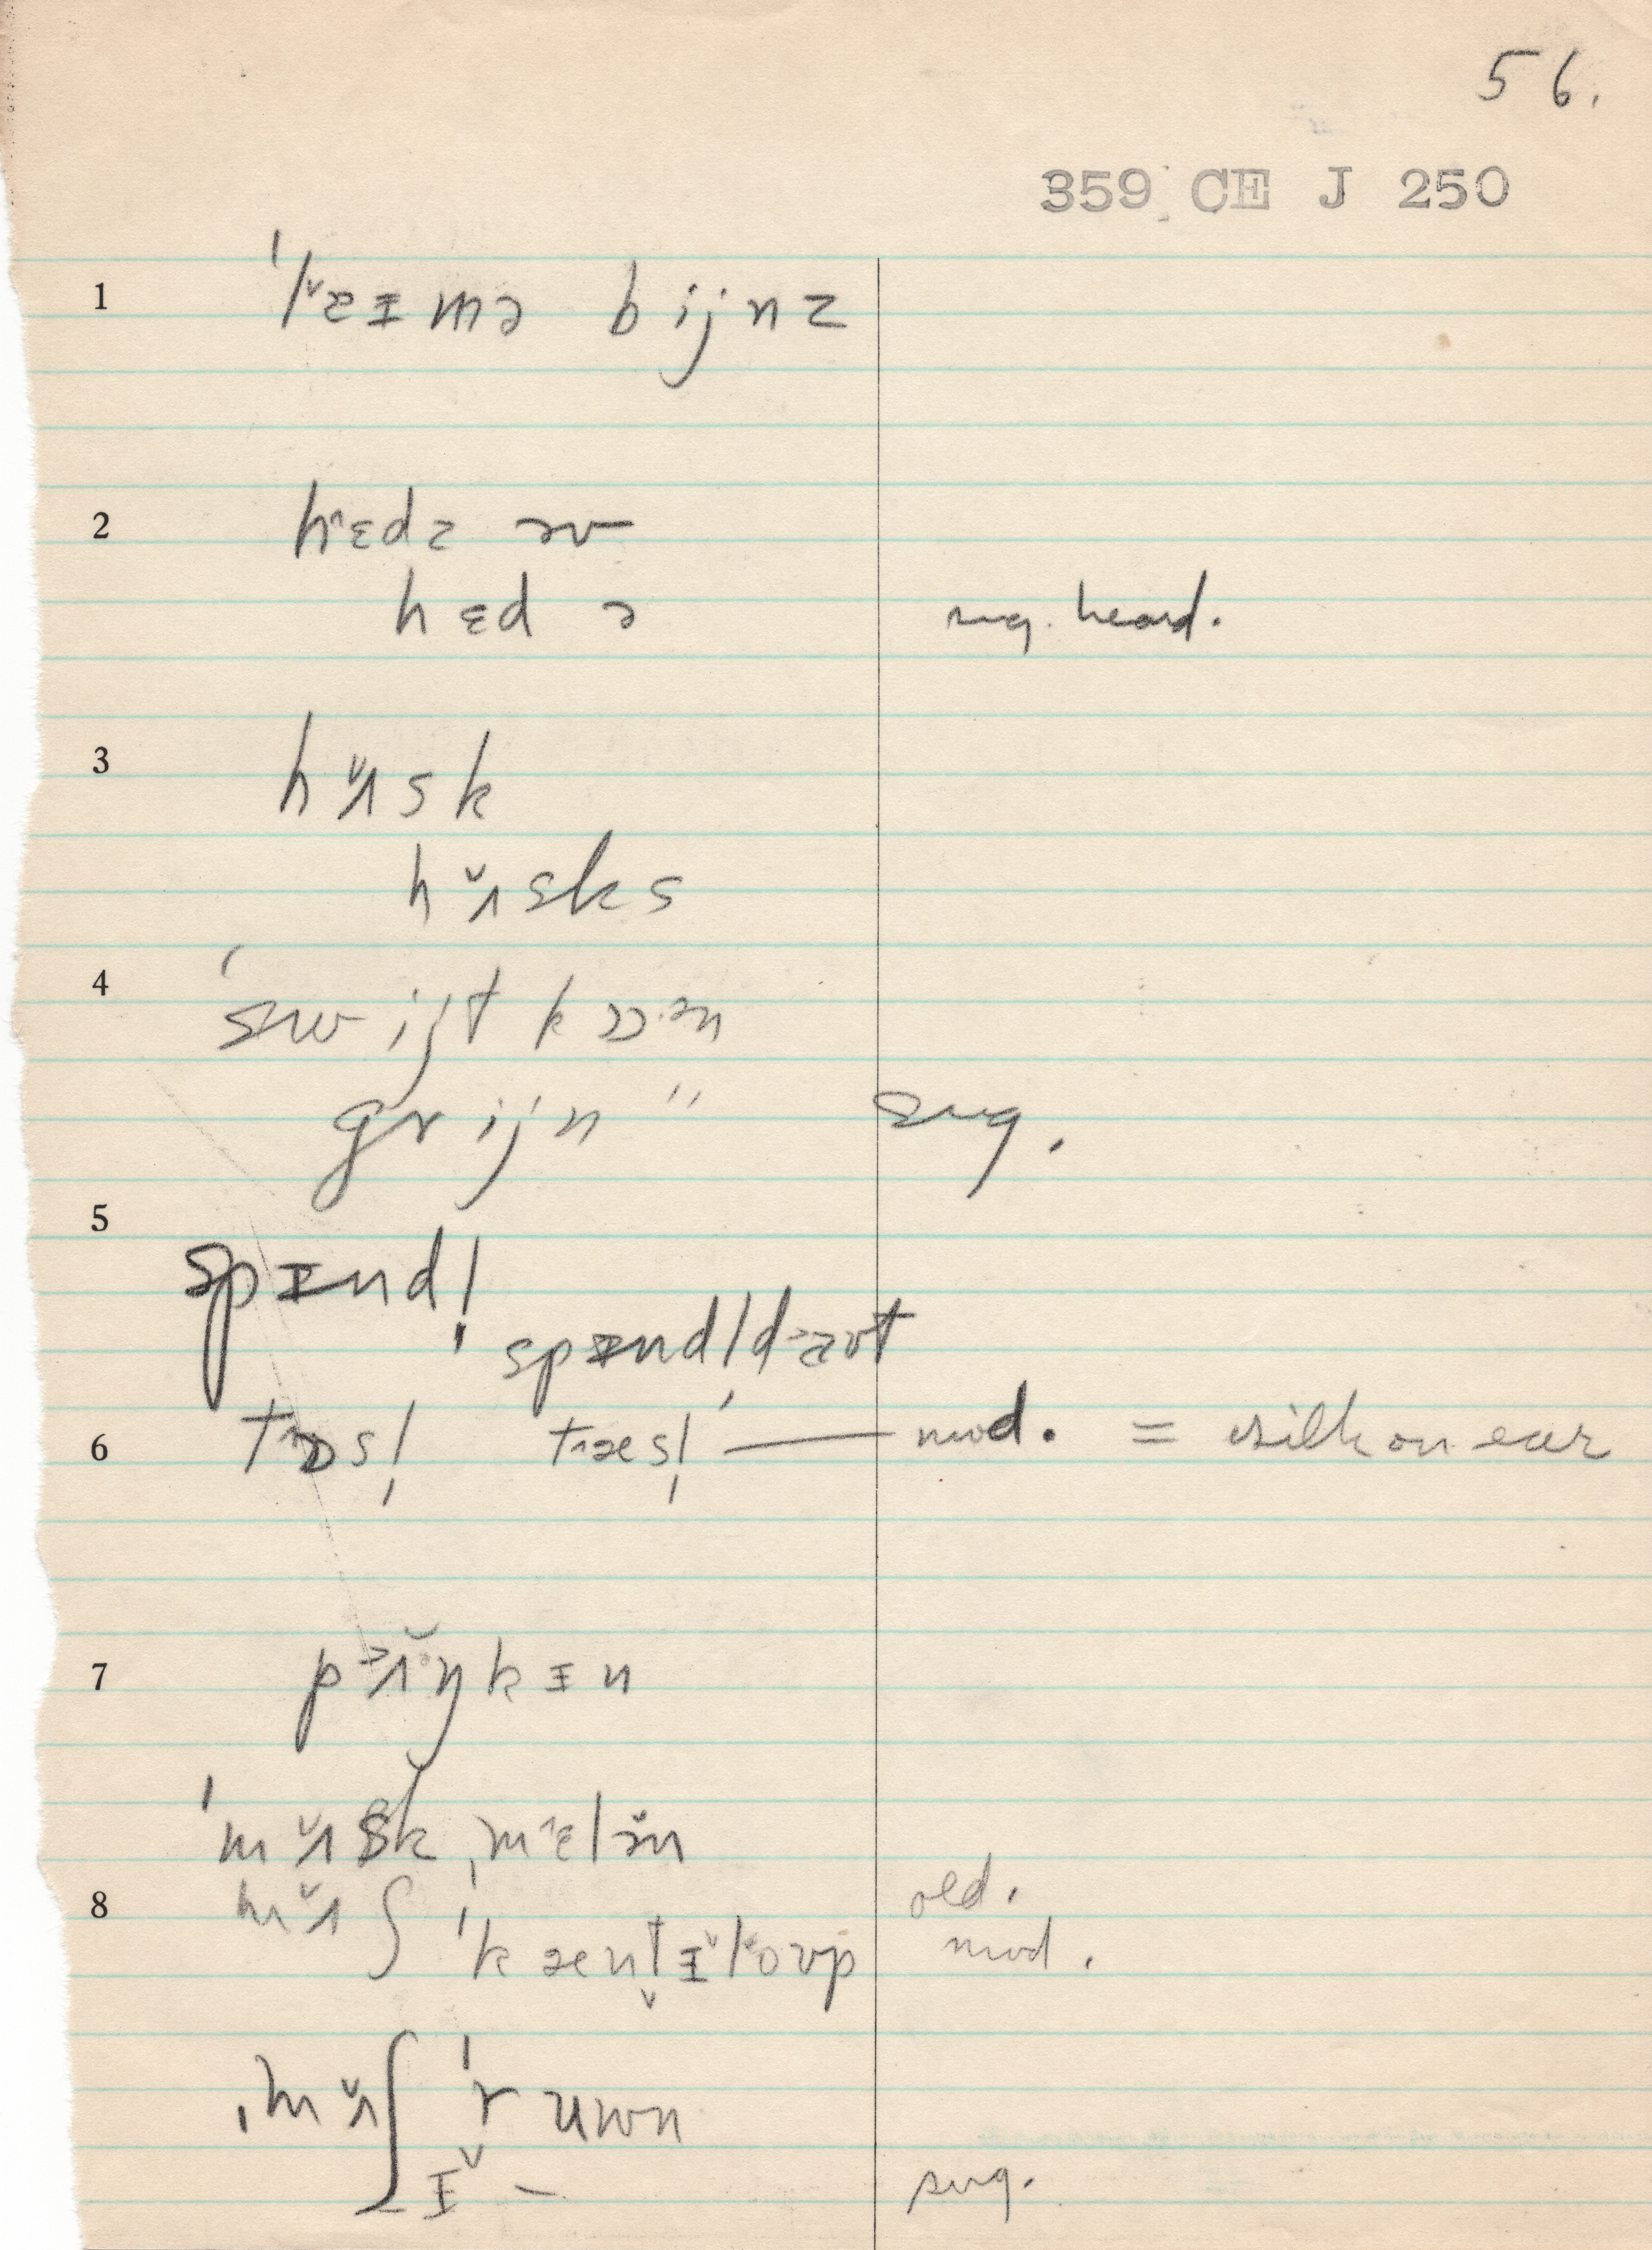 56.
359 CE J 250
1 ˈlæɪmə bijnz
2 hɛdz əv
hɛdə sug. heard.
3 hʌ̆sk
hʌ̆sks
4 ˈswijt kɔən
grijn " sug.
5 spɪnd!
spɪnd|daʊt
6 tɒs! tæs! — mod. = silk on ear
7 pʌ̆ŋkɪn
ˈmʌ̆skˌmɛlən
8 mʌ̆ʃ old.
ˈkæntɪ̆loʊp mod.
ˌmʌ̆ʃˈruwn
ɪ̆ – sug.